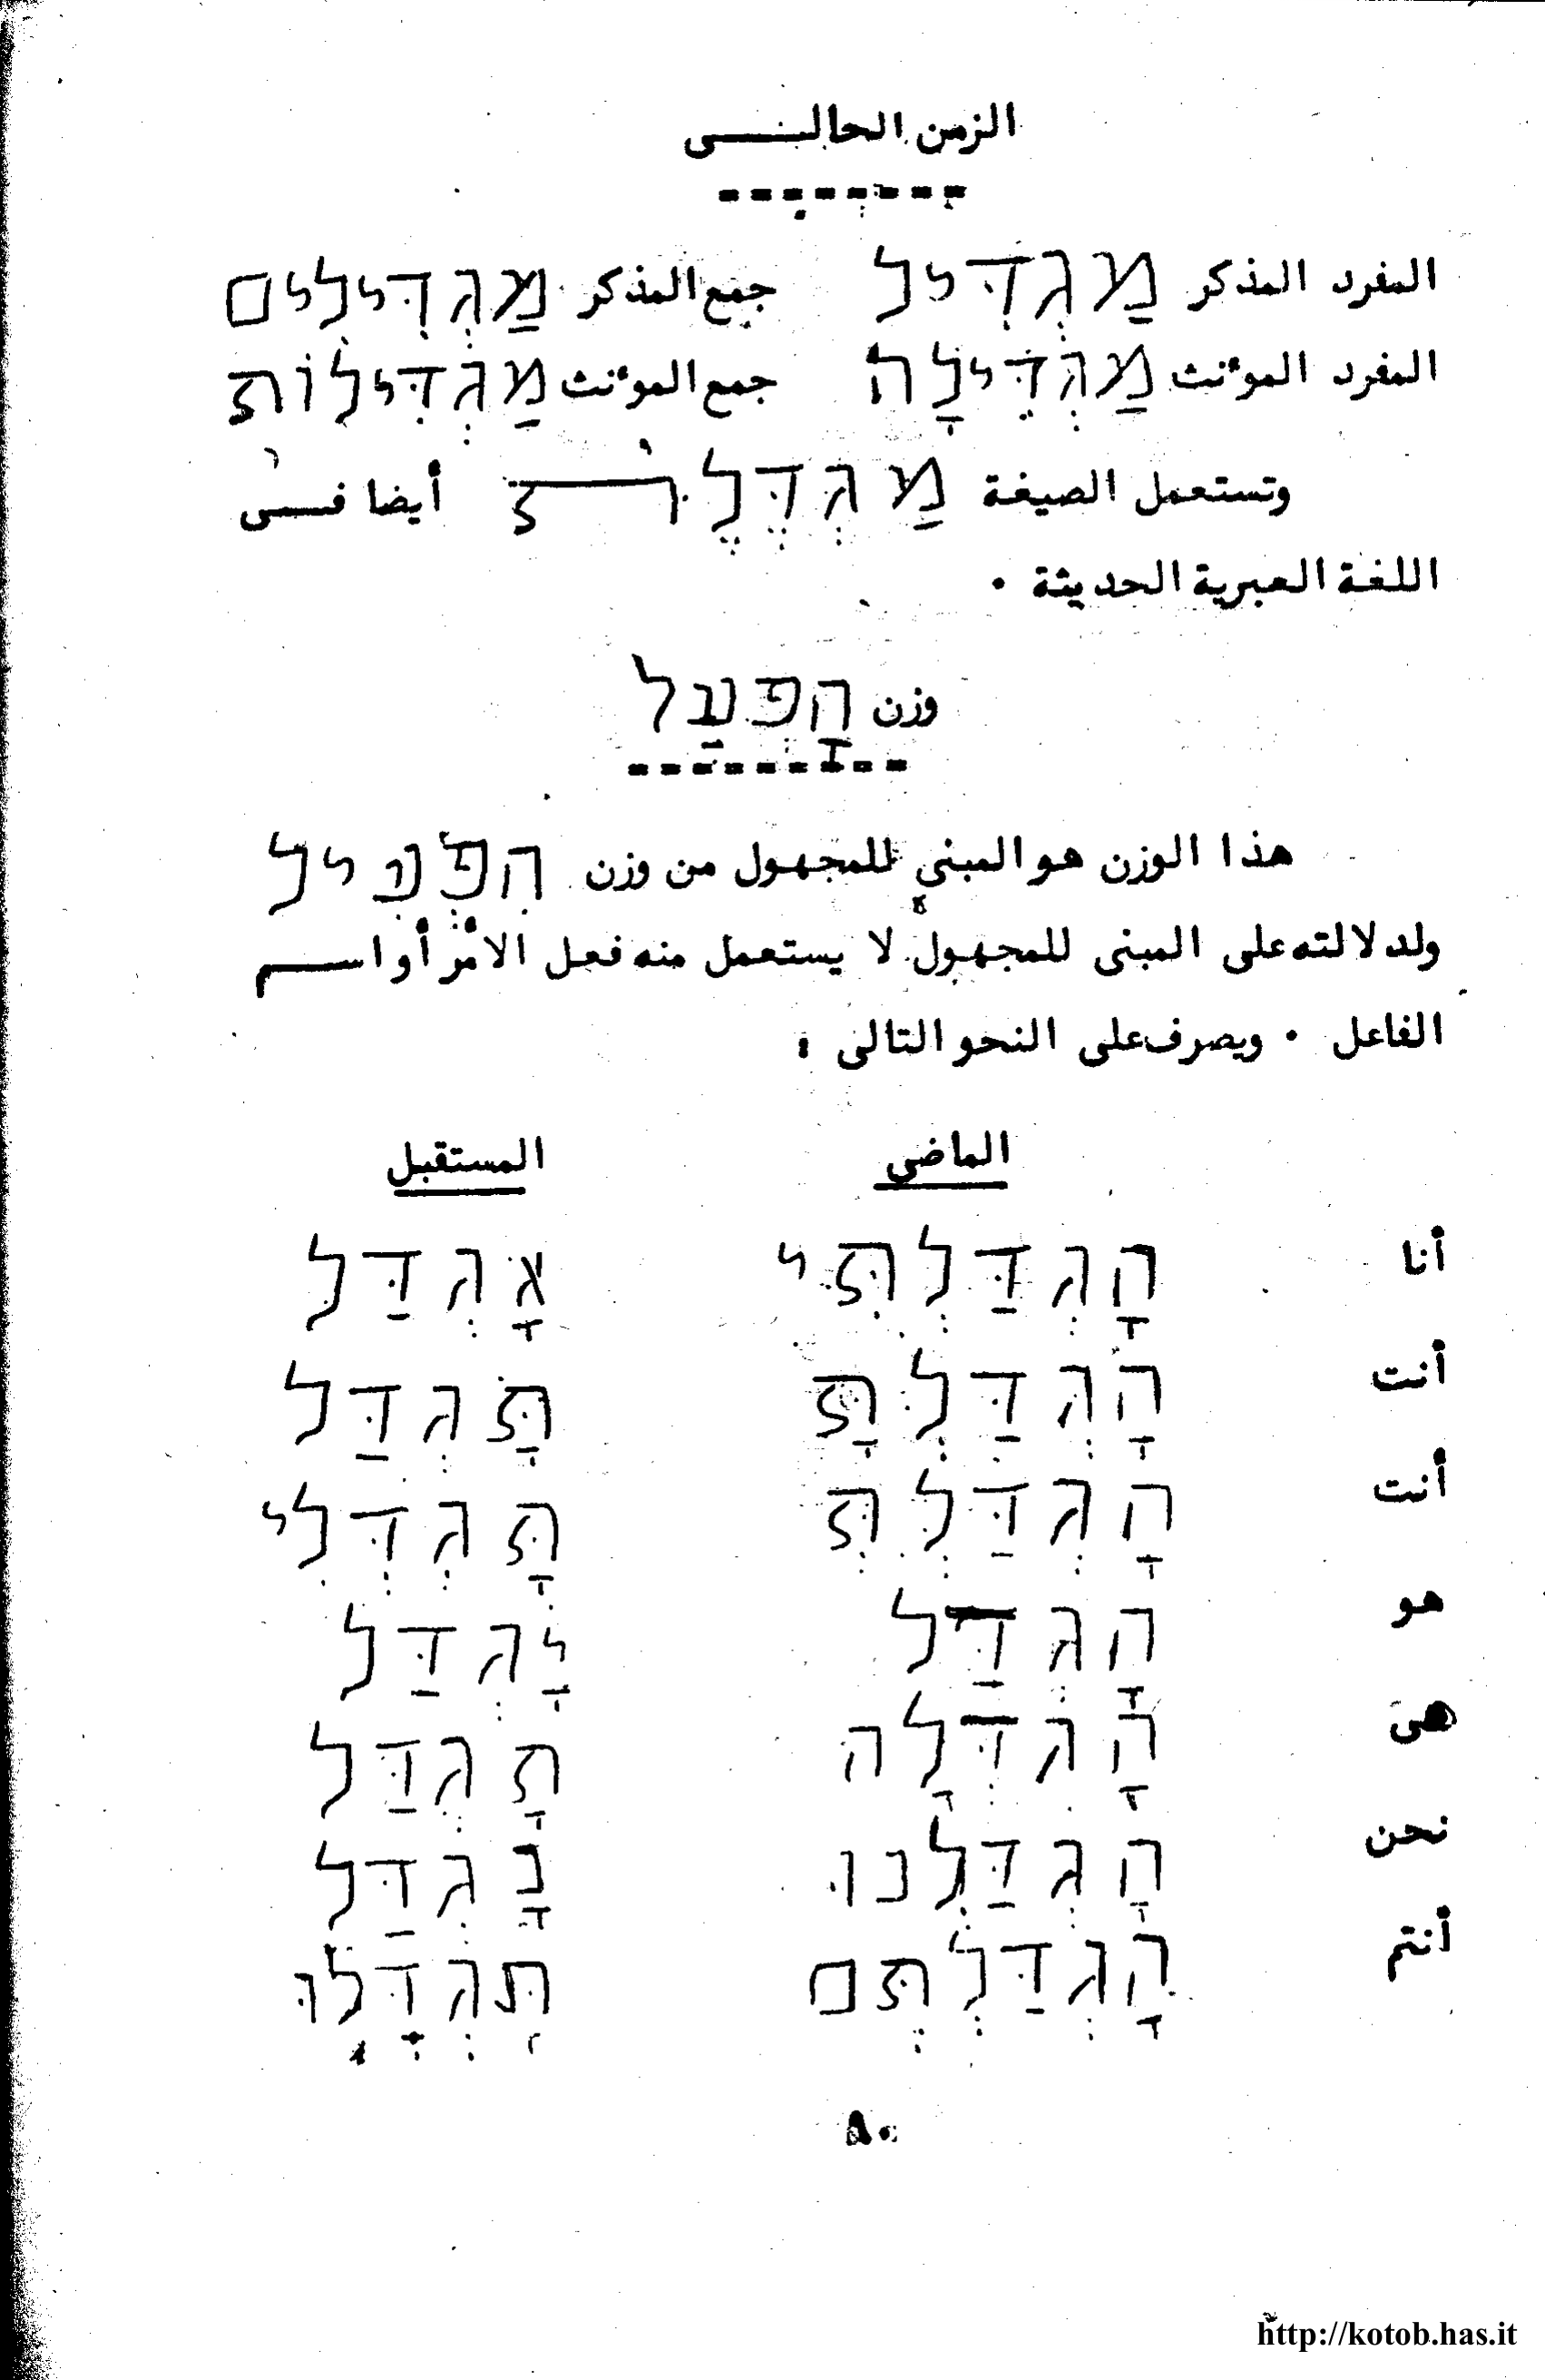 الزمن الحالى
المفرد المذكر מַגְדִּיל جمع المذكر מַגְדִּילִים
المفرد المؤنث מַגְדִּילָה جمع المؤنث מַגְדִּילוֹת
وتستعمل الصيغة מַגְדֶּלֶת أيضا فى
اللغة العبرية الحديثة ٠
وزن הָפְעַל
هذا الوزن هو المبنى للمجهول من وزن הִפְעִיל
ولدلالته على المبنى للمجهول لا يستعمل منه فعل الأمر أو اسم
الفاعل ٠ ويصرف على النحو التالى :
الماضى المستقبل
أنا הָגְדַּלְתִּי אָגְדַּל
أنت הָגְדַּלְתָּ תָּגְדַּל
أنت הָגְדַּלְתְּ תָּגְדְּלִי
هو הָגְדַּל יָגְדַּל
هى הָגְדְּלָה תָגְדַּל
نحن הָגְדַּלְנוּ נָגְדַּל
أنتم הָגְדַּלְתֶּם תִּגְדָּלוּ
٨٠
http://kotob.has.it